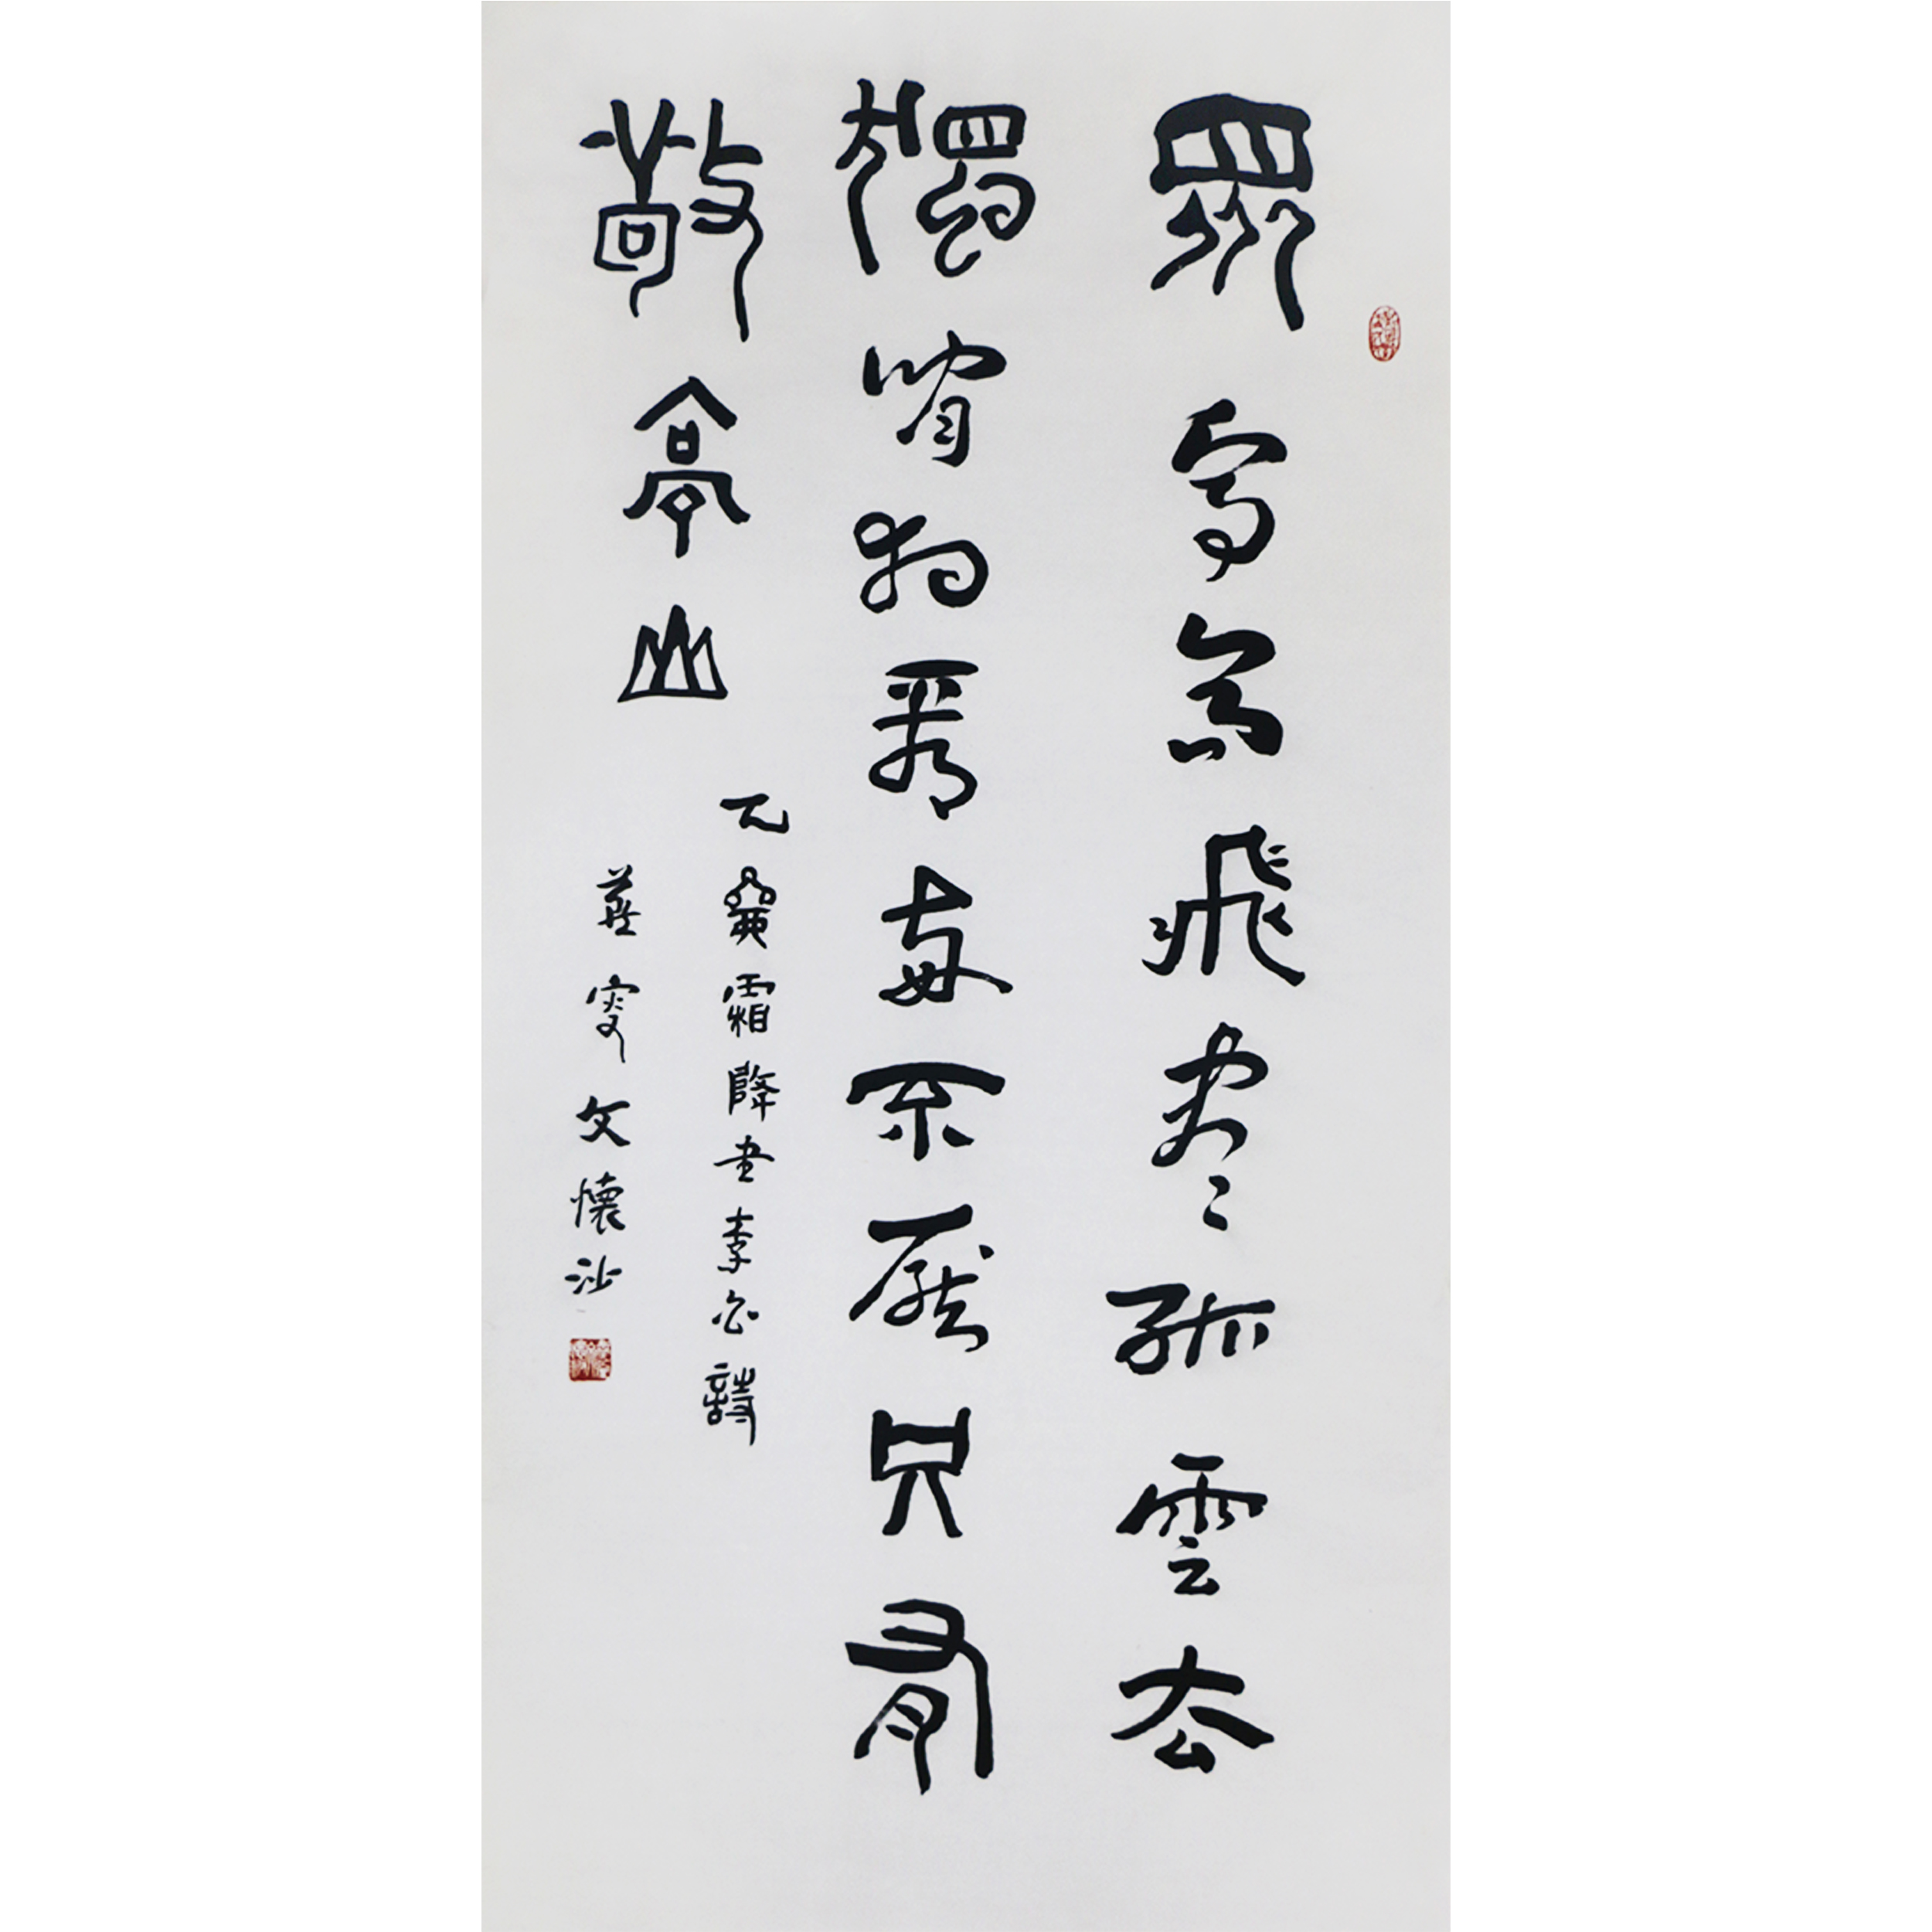 眾鳥高飛盡孤雲去
獨閒相看每不厭只有
敬亭山
乙霜降書李白詩
燕叟文懷沙